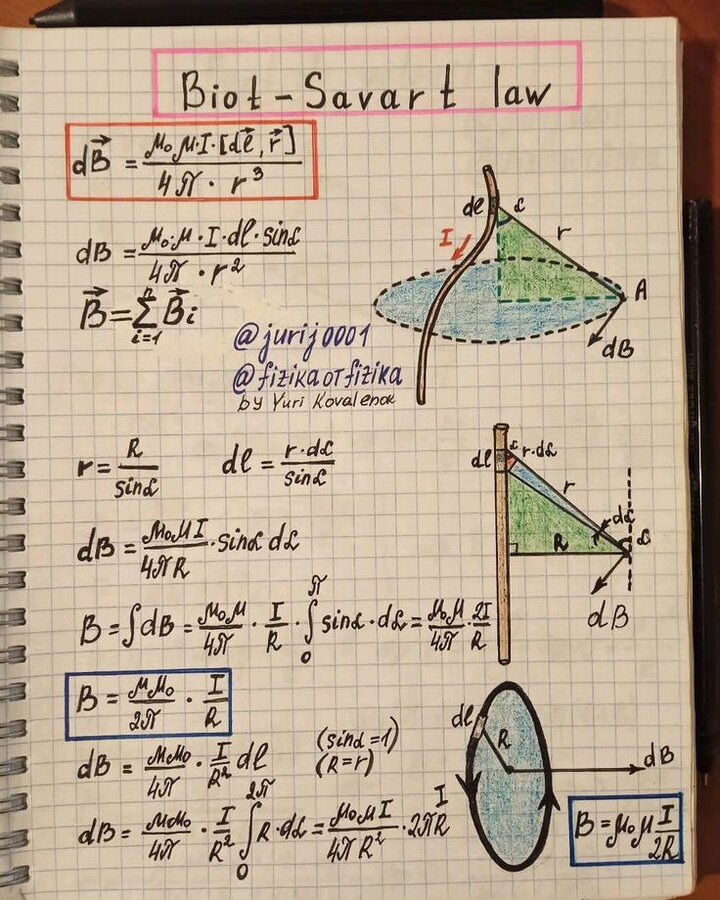 Biot-Savart law
dB⃗ = μ₀μ·I·[dl⃗, r⃗] / 4π · r³
dB = μ₀·μ·I·dl·sinα / 4π·r²
B⃗ = Σ_{i=1}^{n} B⃗i
@jurij0001
@fizikaотfizika
by Yuri Kovalenok
dl
α
r
I
A
dB
r = R / sinα
dl = r·dα / sinα
dB = μ₀μI / 4πR · sinα dα
B = ∫dB = μ₀μ / 4π · I / R · ∫₀^π sinα·dα = μ₀μ / 4π · 2I / R
dl
α
r·dα
r
dα
R
α
dB
B = μμ₀ / 2π · I / R
dB = μμ₀ / 4π · I / R² dl
(sinα=1)
(R=r)
dB = μμ₀ / 4π · I / R² ∫₀^{2π} R·dα = μ₀μI / 4πR² · 2πR
dl
R
dB
I
B = μ₀μ I / 2R